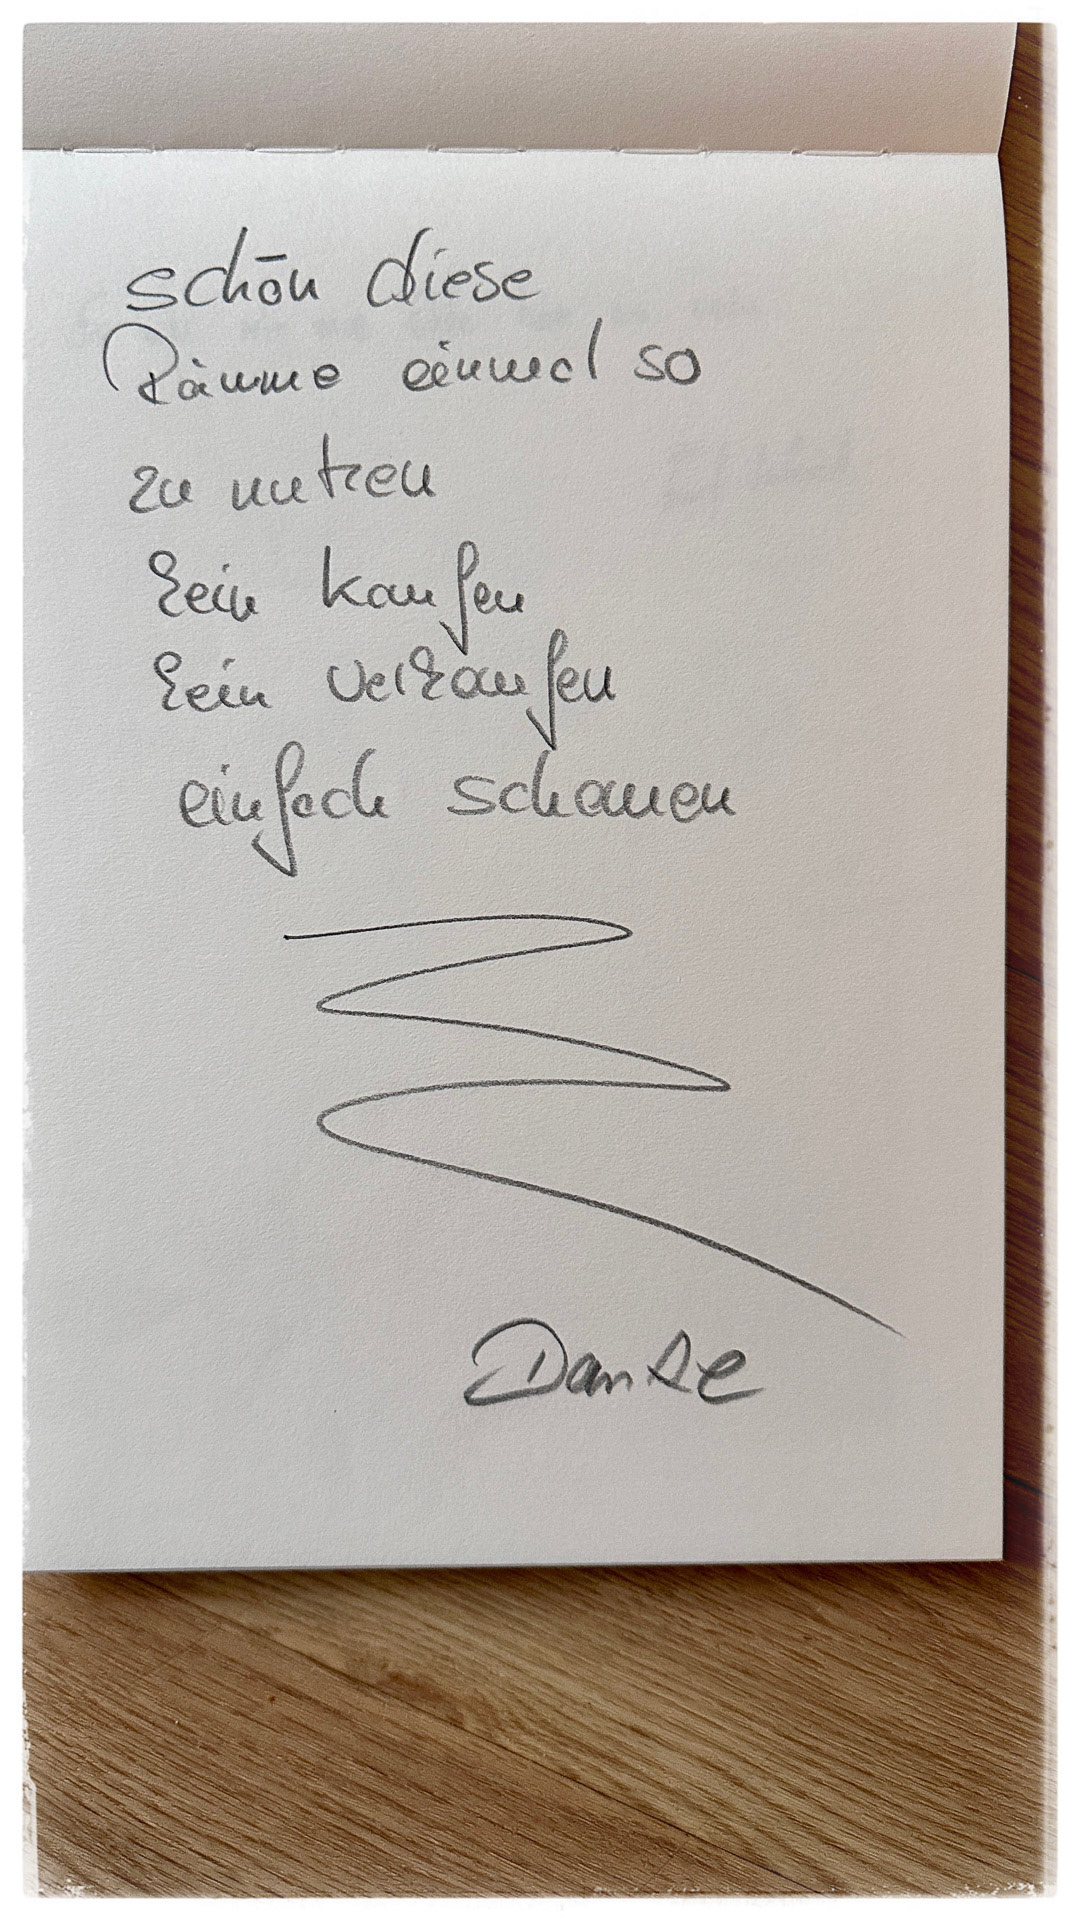 schön diese
Räume einmal so
zu nutzen
kein kaufen
kein verkaufen
einfach schauen
Danke